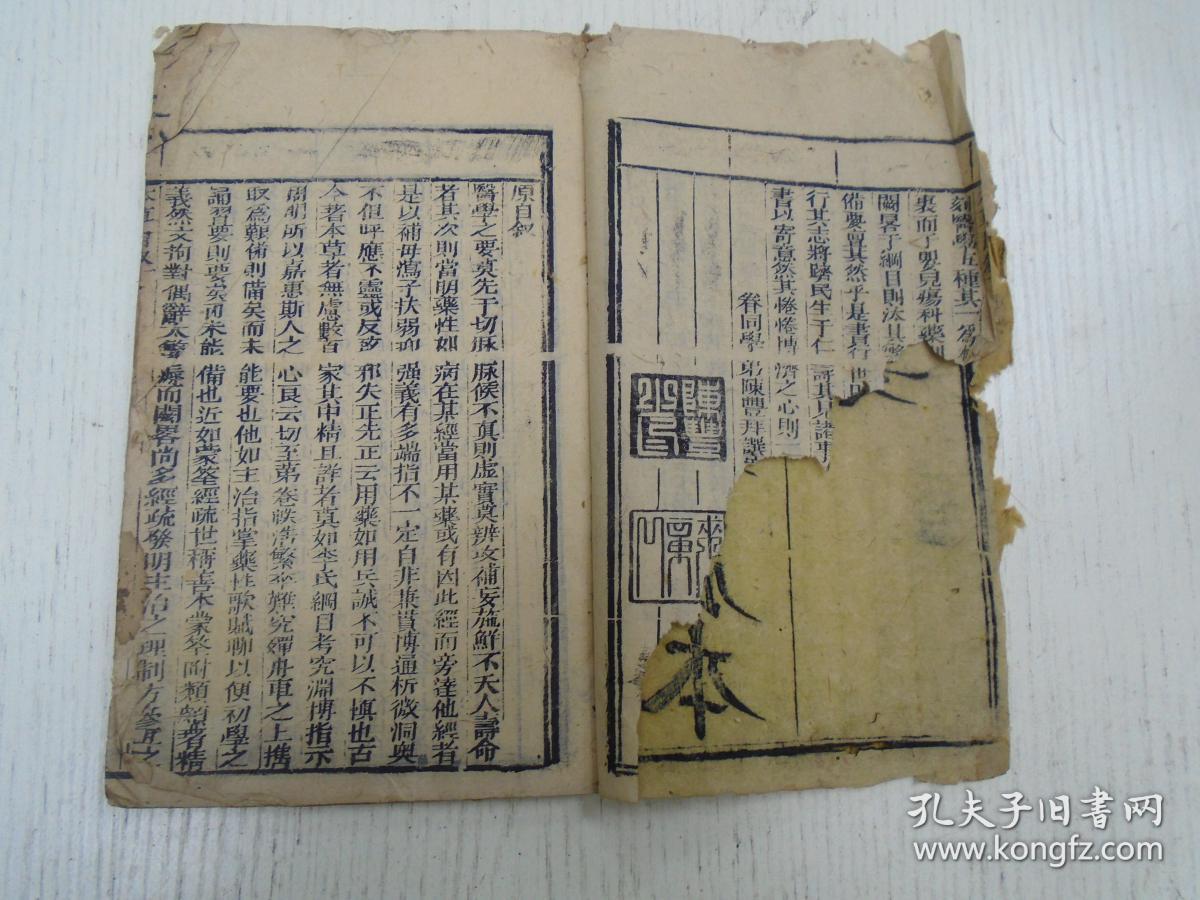 刻醫學五種其一為
裘而于嬰兒瘍科藥
闕畧于綱目則汰其
備慶曾其然乎是書貴行
行其志將躋民生于仁壽其見諸事
書以寄意然其惓惓博濟之心則一
眷同學弟陳豐拜譔
本
原自叙
醫學之要莫先于切脉脉候不真則虛實莫辨攻補妄施鮮不夭人壽命
者其次則當明藥性如病在某經當用某藥或有因此經而旁達他經者
是以補母瀉子扶弱抑强義有多端指不一定自非兼貫博通析微洞奥
不但呼應不靈或反致邪失正先正云用藥如用兵誠不可以不慎也古
今著本草者無慮數百家其中精且詳者莫如李氏綱目考究淵博指示
周明所以嘉惠斯人之心良云切至第卷帙浩繁卒難究殫舟車之上携
取為艱備則備矣而未能要也他如主治指掌藥性歌賦聊以便初學之
誦習要則要矣而未能備也近如蒙筌經疏世稱善本蒙筌附類頗著精
義然文拘對偶辭太繁癈而闕畧尚多經疏發明主治之理制方參互之
孔夫子旧书网
www.kongfz.com